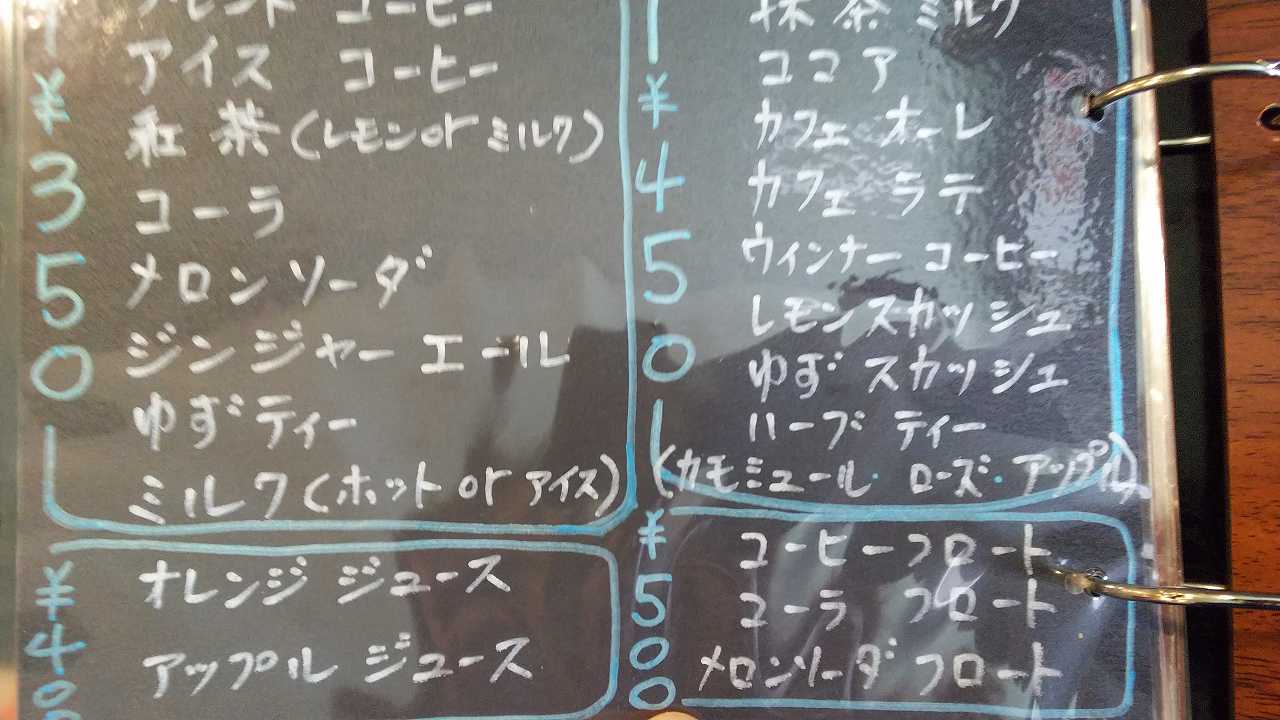 ¥350
ブレンド コーヒー
アイス コーヒー
紅茶(レモンorミルク)
コーラ
メロンソーダ
ジンジャーエール
ゆずティー
ミルク(ホットorアイス)
¥400
オレンジジュース
アップルジュース
¥450
抹茶ミルク
ココア
カフェオーレ
カフェラテ
ウィンナーコーヒー
レモンスカッシュ
ゆずスカッシュ
ハーブティー
(カモミュール・ローズ・アップル)
¥500
コーヒーフロート
コーラ フロート
メロンソーダフロート